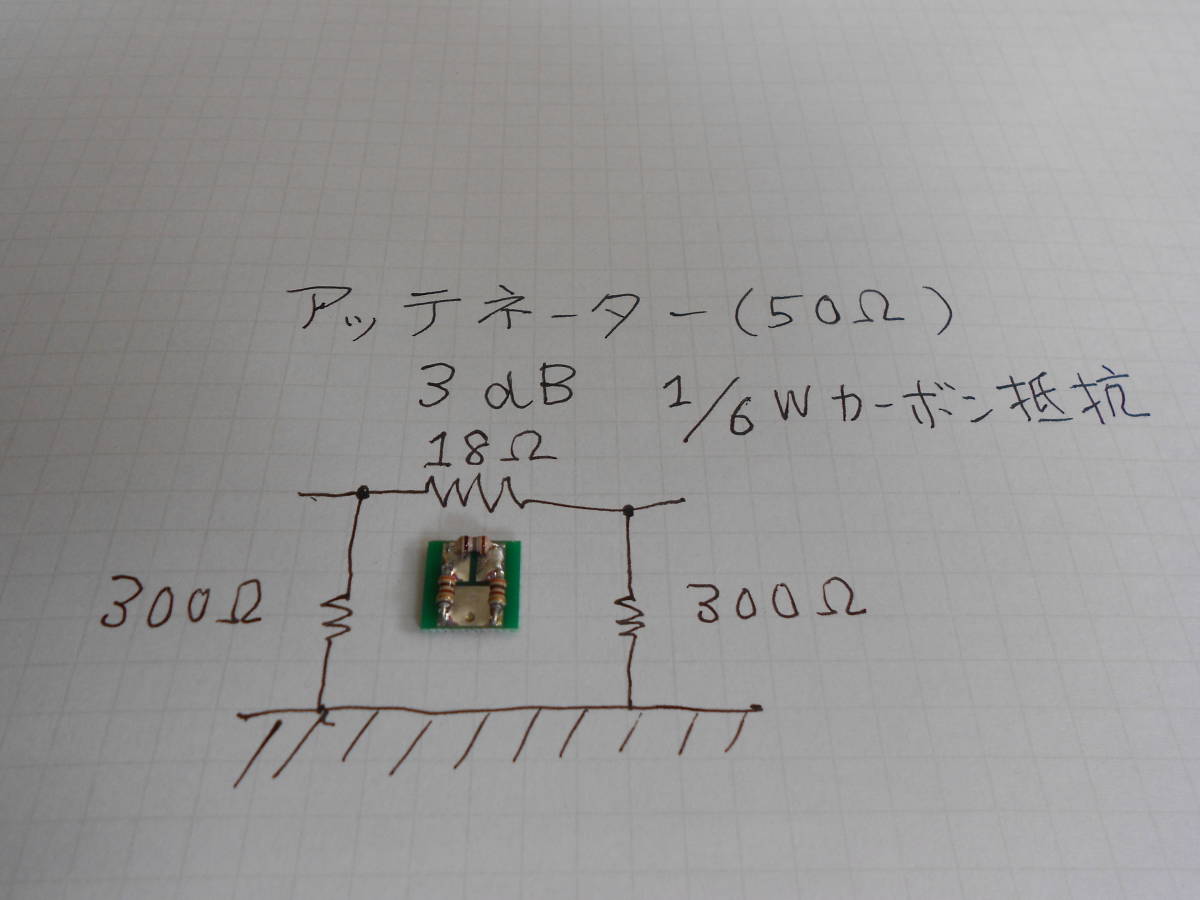 アッテネーター(50Ω)
3dB 1/6Wカーボン抵抗
18Ω
300Ω 300Ω